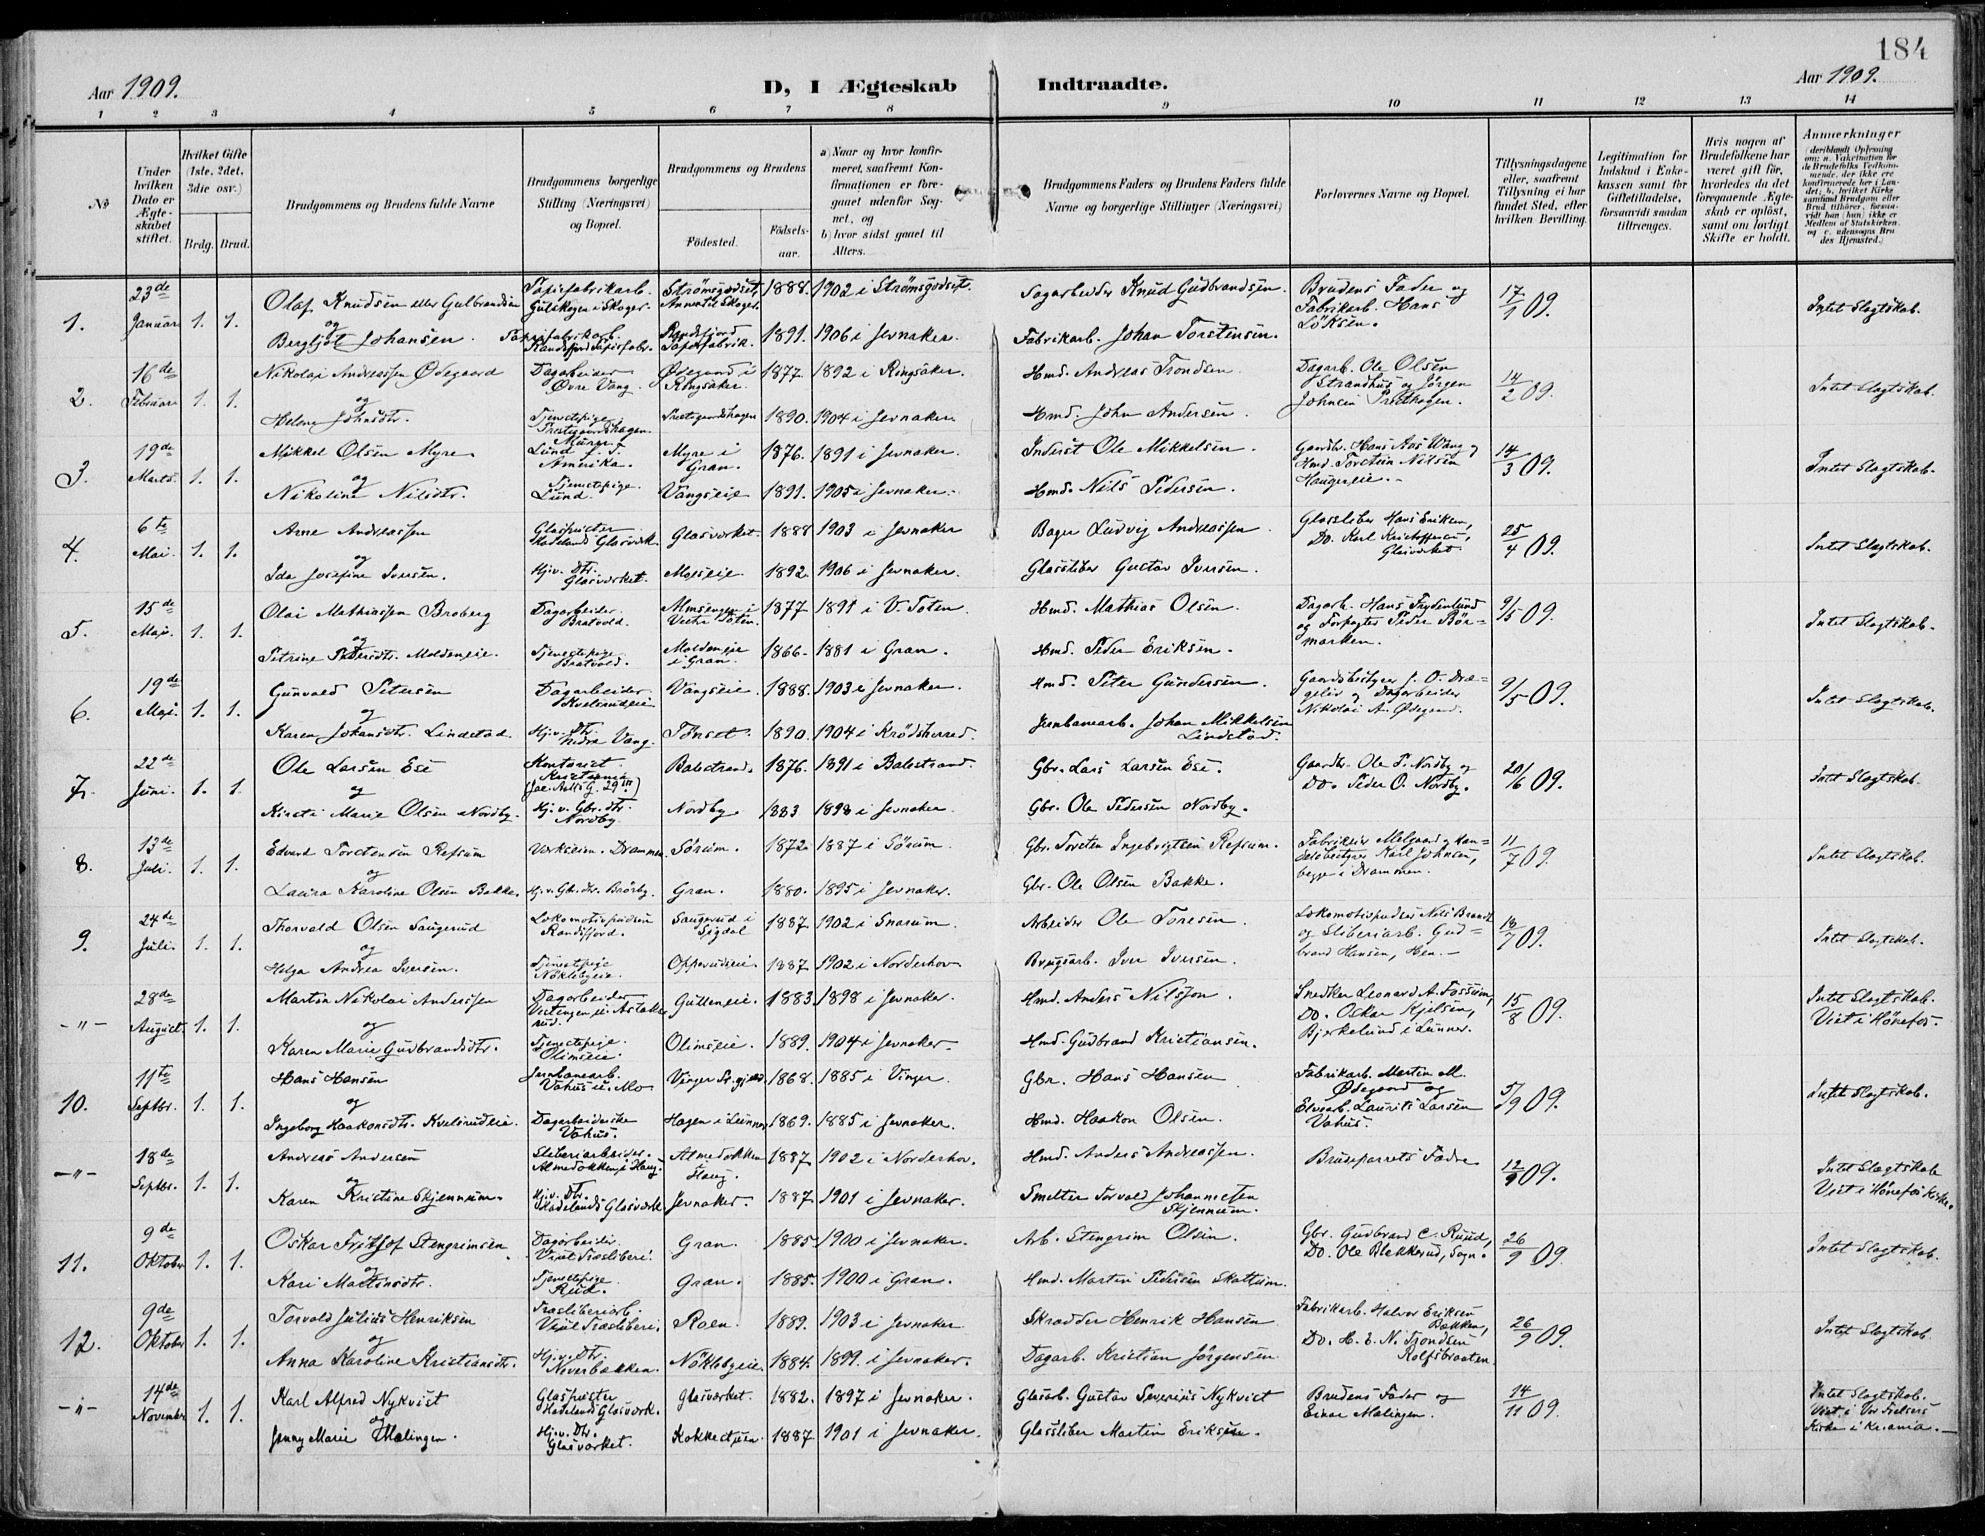 184
Aar 1909.
D, I Ægteskab Indtraadte.
Aar 1909.
1 2 3 4 5 6 7 8 9 10 11 12 13 14
No
Under hvilken Dato er Ægteskabet stiftet.
Hvilket Gifte (1ste, 2det, 3die osv.)
Brdg. Brud.
Brudgommens og Brudens fulde Navne
Brudgommens borgerlige Stilling (Næringsvei) og Bopæl.
Brudgommens og Brudens
Fødested.
Fødselsaar.
a) Naar og hvor konfirmeret, saafremt Konfirmationen er foregaaet udenfor Sognet, og
b) hvor sidst gaaet til Alters.
Brudgommens Faders og Brudens Faders fulde Navne og borgerlige Stillinger (Næringsvei)
Forlovernes Navne og Bopæl.
Tillysningsdagene eller, saafremt Tillysning ei har fundet Sted, efter hvilken Bevilling.
Legitimation for Indskud i Enkekassen samt for Giftetilladelse, forsaavidt saadan tiltrænges.
Hvis nogen af Brudefolkene har været gift før, hvorledes da det foregaaende Ægteskab er opløst, samt om lovligt Skifte er holdt.
Anmærkninger (deriblandt Oplysning om: a. Vakcination for de Brudefolks Vedkommende, der ikke ere konfirmerede her i Landet; b. hvilket Kirkesamfund Brudgom eller Brud tilhører, forsaavidt han (hun) ikke er Medlem af Statskirken, og c. udensogns Brudes Hjemsted.)
1. 23de Januar 1. 1. Olaf Knudsen eller Gulbrandsen Papirfabrikarb. Gulskogen i Skoger. Strømsgodset, Annekts Skoger. 1888. 1902 i Strømsgodset. Sagarbeider Knud Gudbrandsen. Brudens Fader og Fabrikarb. Hans Löksen. 17/1 09. Intet Slegtskab.
og
Bergljot Johansen. Papirfabrikarb. Randsfjord Papirfabr. Randsfjord Papirfabrik. 1891. 1906 i Jevnaker. Fabrikarb. Johan Torstensen.
2. 16de Februar 1. 1. Nikolai Andreassen Ødegaard Dagarbeider Øvre Vang. Ødegaard i Ringsaker. 1877. 1892 i Ringsaker. Hmd. Andreas Trondsen. Dagarb. Ole Olsen Strandhus og Jørgen Johnsen Presthagen. 14/2 09. Intet Slegtskab.
og
Helene Johnsdtr. Tjenestepige Prestegaardshagen. Prestgaardshagen 1890. 1904 i Jevnaker. Hmd. John Andersen.
3. 19de Marts. 1. 1. Mikkel Olsen Myre. Murer Lund f. T. Amerika. Myre i Gran. 1876. 1891 i Jevnaker. Inderst Ole Mikkelsen. Gaardbr. Hans Aas Wang og Hmd. Torstein Nilsen Haugereie. 14/3 09. Intet Slegtskab.
og
Nikoline Nilsdtr. Tjenestepige. Lund. Vangseie 1891. 1905 i Jevnaker. Hmd. Nils Pedersen.
4. 6te Mai. 1. 1. Arne Andreassen Glaspuster Hadelands Glasverk. Glasverket. 1888 1903 i Jevnaker Bager Ludvig Andreassen Glassliber Hans Eriksen, Do. Karl Kristoffersen, Glasverket. 25/4 09. Intet Slegtskab.
og
Ida Josefine Iversen. Hjv. Dtr. Glasverket. Moseie. 1892. 1906 i Jevnaker. Glassliber Gustav Iversen.
5. 15de Maj. 1. 1. Olai Mathiassen Broberg Dagarbeider Bratvold. Almsengen i Vestre Toten. 1877 1891 i V. Toten. Hmd. Mathias Olsen. Dagarb. Hans Frydenlund og Forpagter Peder Børmarken. 9/5 09. Intet Slegtskab.
og
Petrine Pedersdtr. Moldeneie. Tjenestepige Bratvold. Moldeneie i Gran. 1866. 1881 i Gran. Hmd. Peder Eriksen.
6. 19de Maj. 1. 1. Gunvald Petersen Dagarbeider Kvelsrudeie Vangseie. 1888. 1903 i Jevnaker. Hmd. Peter Gundersen. Gaardsbestyrer J. O. Drægelid og Dagarbeider Nikolai A. Ødegaard. 9/5 09. Intet Slegtskab.
og
Karen Johansdtr. Lindestad. Hjv. Dtr. Nedre Vang. Tönset. 1890. 1904 i Krødsherred. Jernbanearb. Johan Mikkelsen Lindstad.
7. 22de Juni. 1. 1. Ole Larsen Ese Kontorist Kristiania (Jac. Aalls G. 29 III) Balestrand. 1876. 1891 i Balestrand. Gbr. Lars Larsen Ese. Gaardbr. Ole P. Nordby og Do. Peder O. Nordby. 20/6 09. Intet Slegtskab.
og
Kirsti Marie Olsen Nordby. Hj. v. Gbr. dtr. Nordby. Nordby 1883 1898 i Jevnaker. Gbr. Ole Pedersen Nordby.
8. 13de Juli. 1. 1. Edvard Torstensen Refsum Værkseier. Drammen. Sørum. 1872. 1887 i Sørum. Gbr. Torsten Ingebrigtsen Refsum. Fabrikeier Melgaard og Handelsbestyrer Karl Johnsen, begge i Drammen. 11/7 09. Intet Slegtskab.
og
Laura Karoline Olsen Bakke. Hj. v. Gb. dr. Brørby. Gran. 1880. 1895 i Jevnaker. Gbr. Ole Olsen Bakke.
9. 24de Juli. 1. 1. Thorvald Olsen Saugerud Lokomotivpudser Randsfjord. Saugerud i Sigdal 1887. 1902 i Snarum. Arbeider Ole Toresen. Lokomotivpudser Nils Brandt og Sliberiarb. Gudbrand Hansen, Hen. 18/7 09. Intet Slegtskab.
og
Helga Andrea Iversen. Tjenestepige Nöklebyeie. Opperudeie. 1887. 1902 i Norderhov. Brugsarb. Iver Iversen.
-"- 28de August. 1. 1. Martin Nikolai Anderssen Dagarbeider Gulleneie. 1883. 1898 i Jevnaker. Hmd. Anders Nilsson. Snedker Leonard A. Fossum, Do. Oskar Kjelsen, Bjerkelund i Lunner. 15/8 09. Intet Slegtskab. Viet i Hønefos.
og
Karen Marie Gudbrandsdtr. Tjenestepige. Olimseie. Olimseie. 1889. 1904 i Jevnaker. Hmd. Gudbrand Kristiansen.
10. 11te Septbr. 1. 1. Hans Hansen Jernbanearb. Vahus u. Mo Vinger Pr.gjeld 1868. 1885 i Vinger. Gbr. Hans Hansen Fabrikarb. Martin M. Ødegaard og Elvearb. Laurits Larsen Vahus. 5/9 09. Intet Slegtskab.
og
Ingeborg Haakonsdtr. Kvelsrudeie. Dagarbeiderske Vahus. Hagen i Lunner 1869. 1885 i Jevnaker. Hmd. Haakon Olsen.
-"- 18de Septbr. 1. 1. Andreas Andersen Sliberiarbeider. Almedokken i Haug. Almedokken Haug. 1887. 1902 i Norderhov. Hmd. Anders Andreassen. Brudeparrets Fædre 12/9 09. Intet Slegtskab Viet i Hønefos Kirke.
og
Karen Kristine Skjennum. Hjv. Dtr. Hadelands Glasverk. Jevnaker. 1887. 1901 i Jevnaker. Smelter Torvald Johannesen Skjennum.
11. 9de Oktober 1. 1. Oskar Fritjof Stengrimsen Dagarbeider Viul Træsliberi. Gran. 1885. 1900 i Jevnaker. Arb. Stengrim Olsen. Gbr. Gudbrand C. Ruud, Do. Ole Blekkerud, Sogn. 26/9 09. Intet Slegtskab.
og
Kari Martinsdtr. Tjenestepige Rud. Gran. 1885. 1900 i Gran. Hmd. Martin Pedersen Skattum.
12. 9de Oktober 1. 1. Torvald Julius Henriksen Træsliberiarb. Viul Træsliberi. Roen. 1889. 1903 i Jevnaker Skrædder Henrik Hansen Fabrikarb. Halvor Eriksen Bakken, Do. H. E. N. Trondsen Rolfsbraaten. 26/9 09. Intet Slegtskab.
og
Anna Karoline Kristiansdtr. Hj. v. Dtr. Noverbakken. Nöklebyeie 1884. 1899. i Jevnaker. Dagarb. Kristian Jørgensen
-"- 14de November 1. 1. Karl Alfred Nykvist Glaspuster Hadelands Glasverk. Glasverket. 1882. 1897 i Jevnaker. Glasarb. Gustav Severius Nykvist Brudens Fader og Einar Malingen. 14/11 09. Intet Slegtskab. Viet i Vor Frelsers Kirke i Kr.ania.
og
Jenny Marie Malingen. Hj. v. Dtr. Glasverket. Kokkestuen. 1887 1901 i Jevnaker. Glassliber Martin Eriksen.